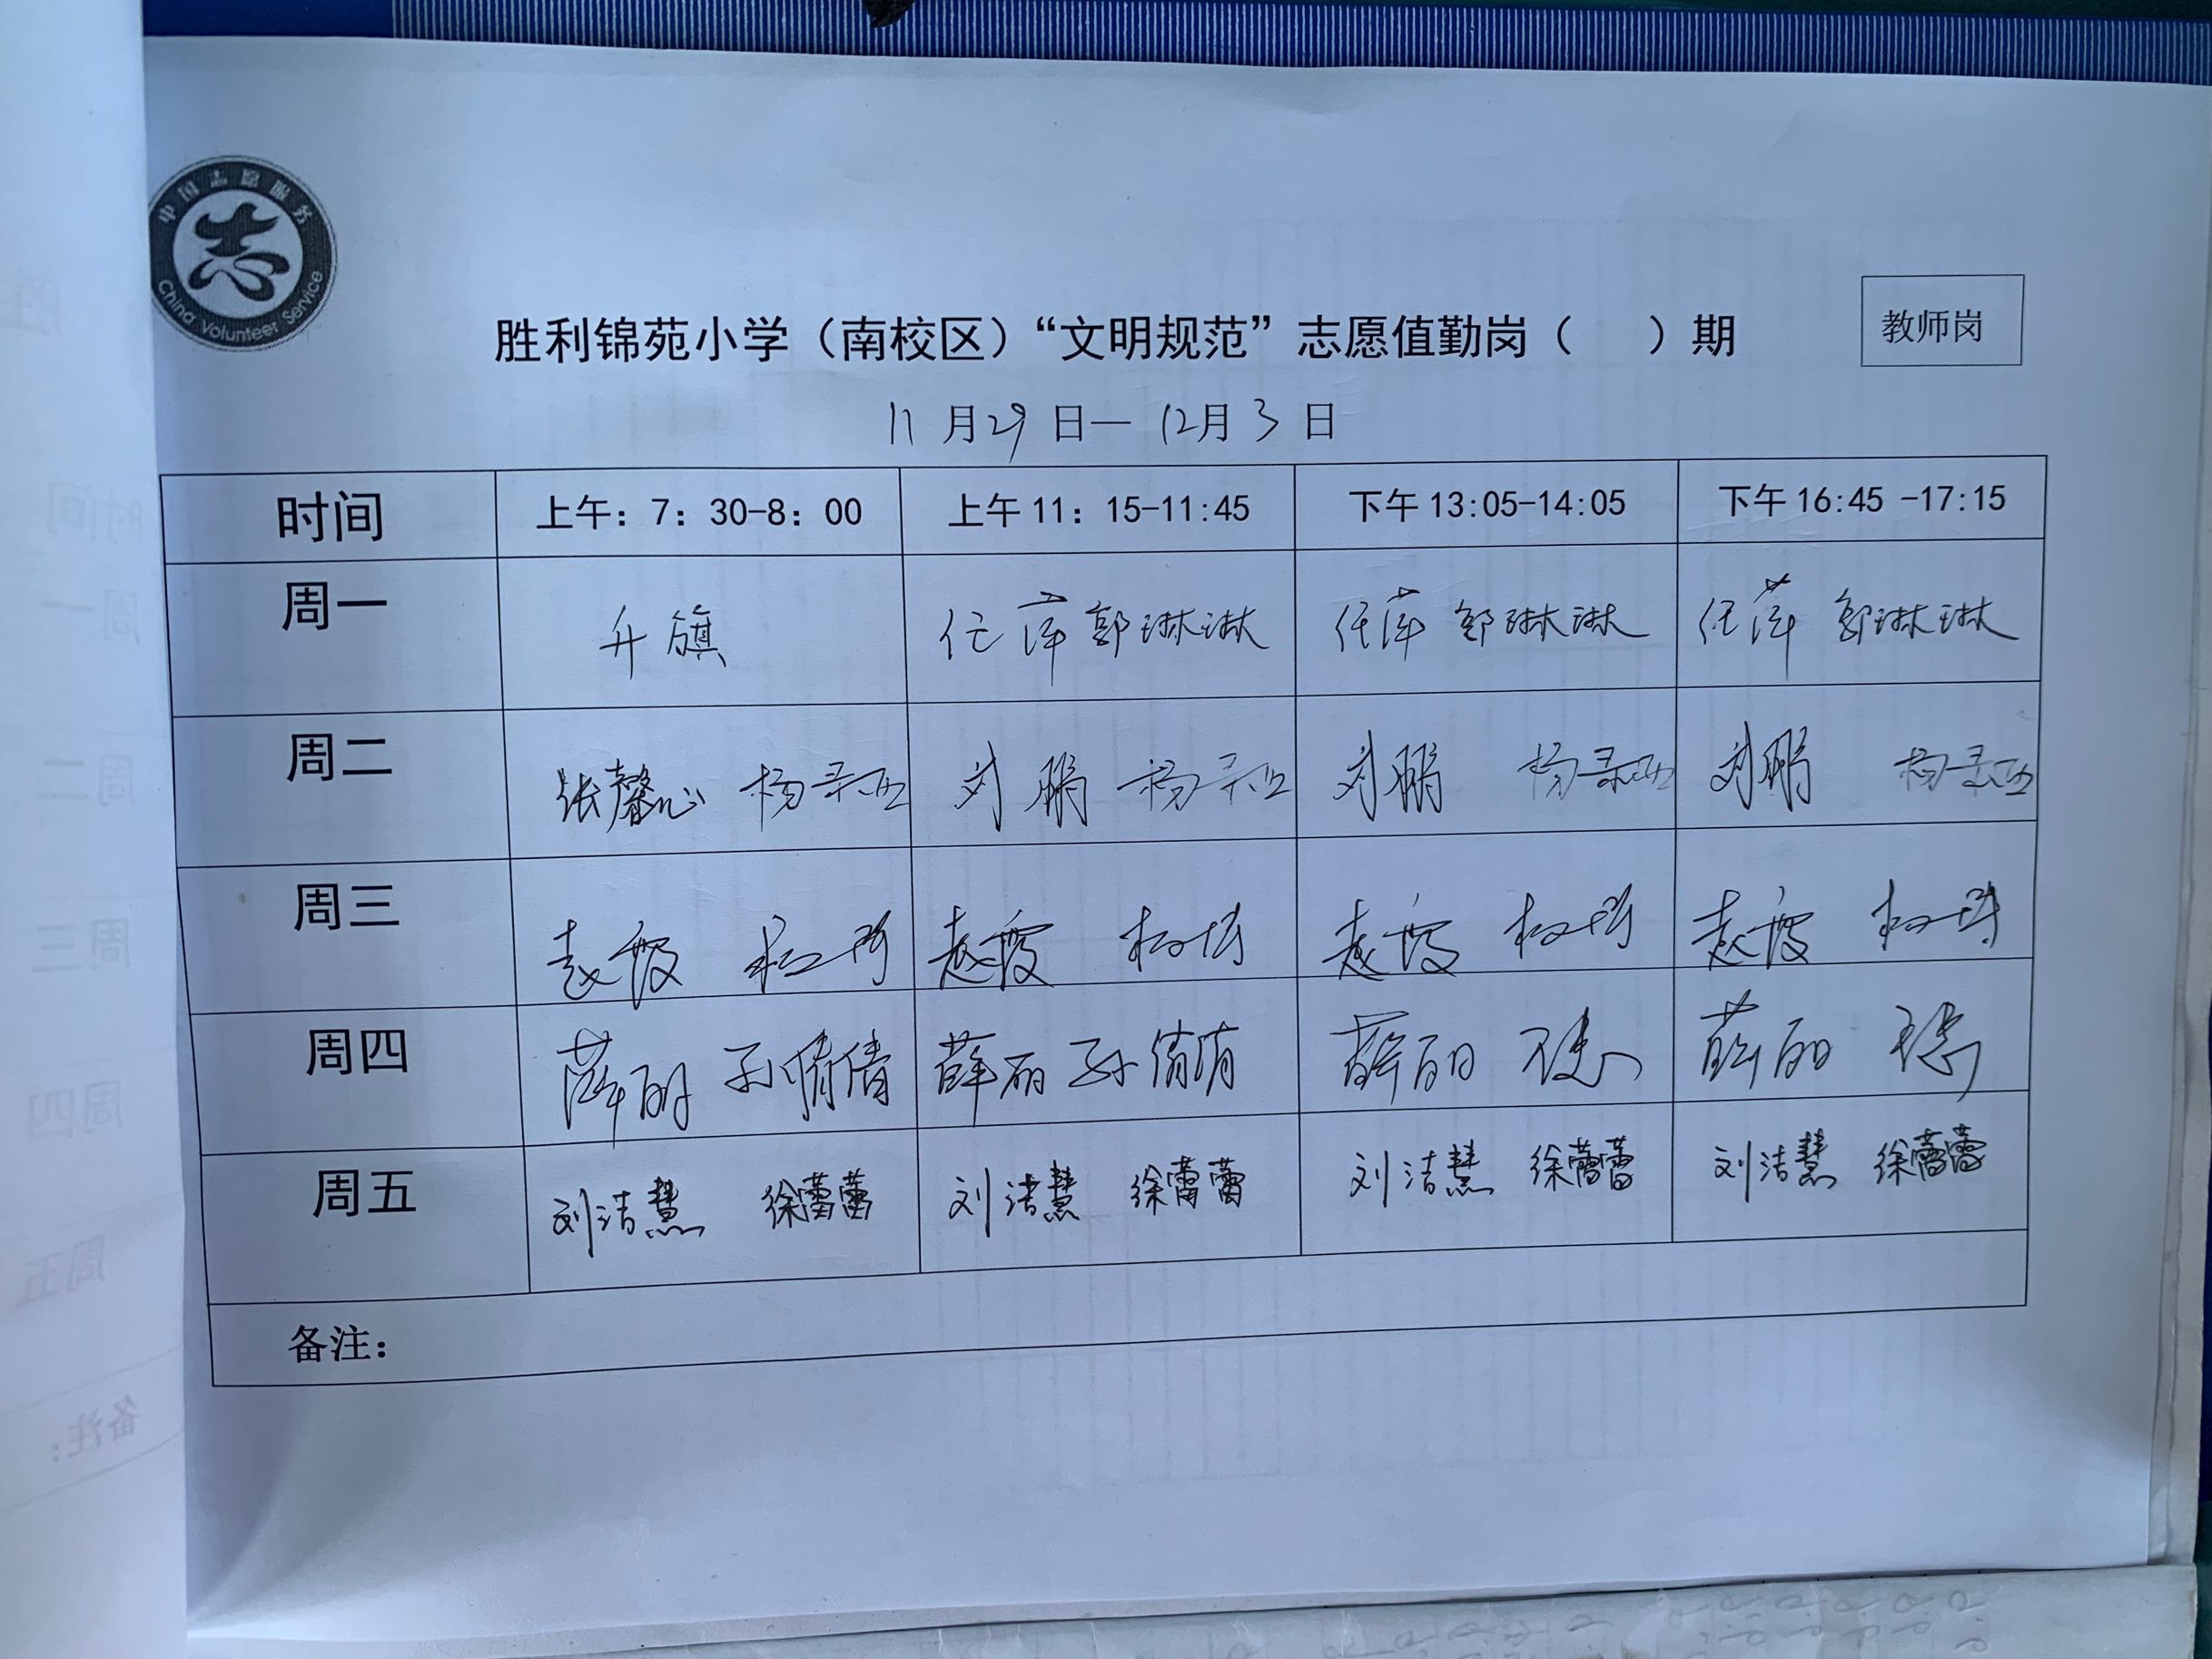 中国志愿服务
志
China Volunteer Service
教师岗
胜利锦苑小学（南校区）“文明规范”志愿值勤岗（ ）期
11月29日—12月3日
时间 上午：7：30-8：00 上午11：15-11:45 下午13:05-14:05 下午16:45 -17:15
周一 升旗 任萍 郭琳琳 任萍 郭琳琳 任萍 郭琳琳
周二 张馨心 杨 刘鹏 杨 刘鹏 杨 刘鹏 杨
周三 赵霞 赵霞 赵霞 赵霞
周四 薛丽 孙倩倩 薛丽 孙倩倩 薛丽 薛丽
周五 刘洁慧 徐蕾蕾 刘洁慧 徐蕾蕾 刘洁慧 徐蕾蕾 刘洁慧 徐蕾蕾
备注：